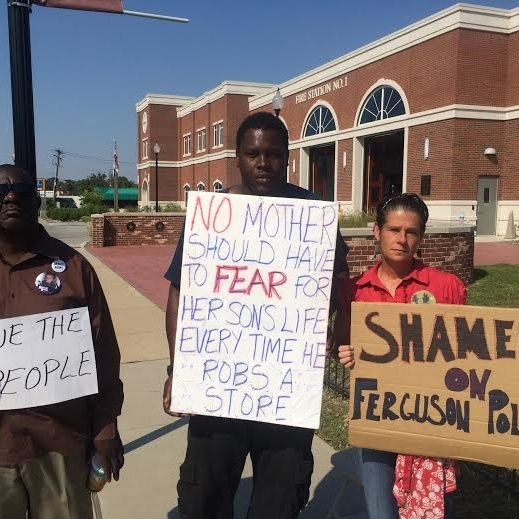 FIRE STATION NO.1
UE THE
PEOPLE
NO MOTHER
SHOULD HAVE
TO FEAR FOR
HER SONS LIFE
EVERY TIME HE
ROBS A
STORE
SHAME
ON
FERGUSON POL